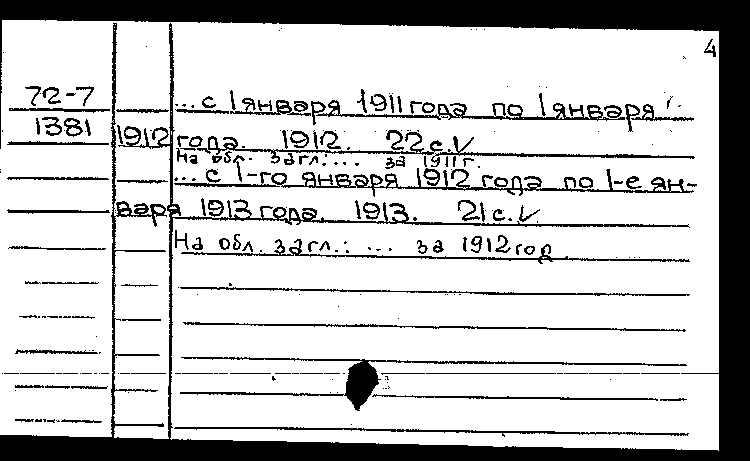 4
72-7 ... с 1 января 1911 года по 1 января
1381 1912 года. 1912. 22 с. V
На обл. загл.: ... за 1911 г.
... с 1-го января 1912 года по 1-е ян-
варя 1913 года. 1913. 21 с. V
На обл. загл.: ... за 1912 год